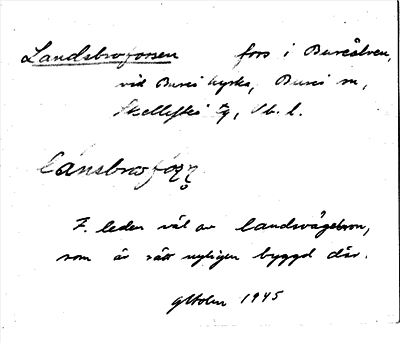 Landsbroforsen fors i Bureälven,
vid Bureå kyrka, Bureå sn,
Skellefteå tg, Vb. l.
lánsbrofoṣṇ̥
F. leden väl av landsvägsbron,
som är rätt nyligen byggd där.
GHolm 1945